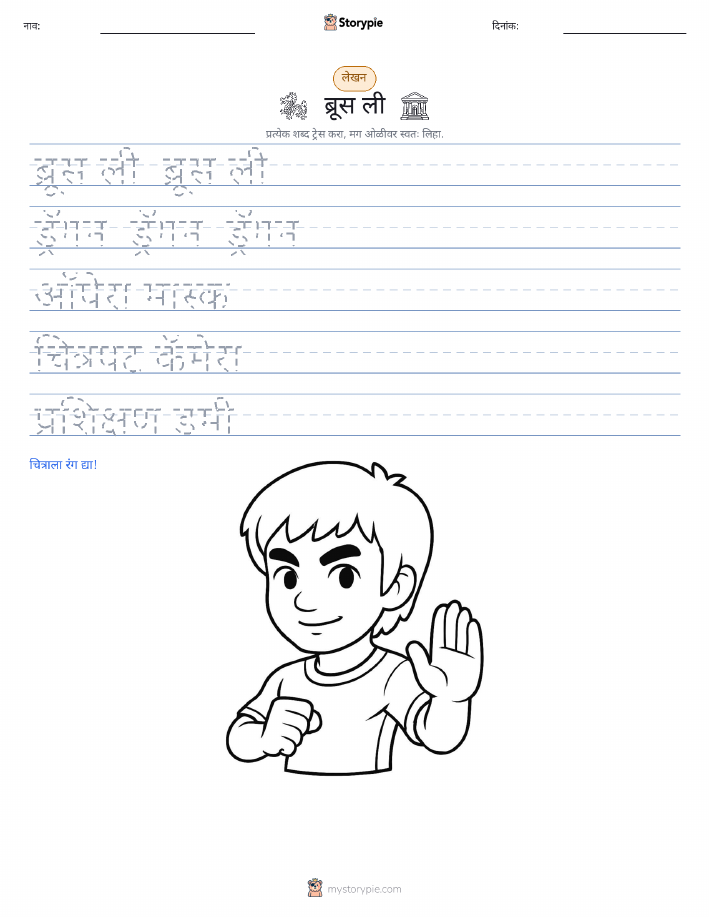 नाव:
Storypie
दिनांक:
लेखन
ब्रूस ली
प्रत्येक शब्द ट्रेस करा, मग ओळीवर स्वतः लिहा.
ब्रूस ली ब्रूस ली
ड्रॅगन ड्रॅगन ड्रॅगन
ऑपेरा मास्क
चित्रपट कॅमेरा
प्रशिक्षण डमी
चित्राला रंग द्या!
mystorypie.com